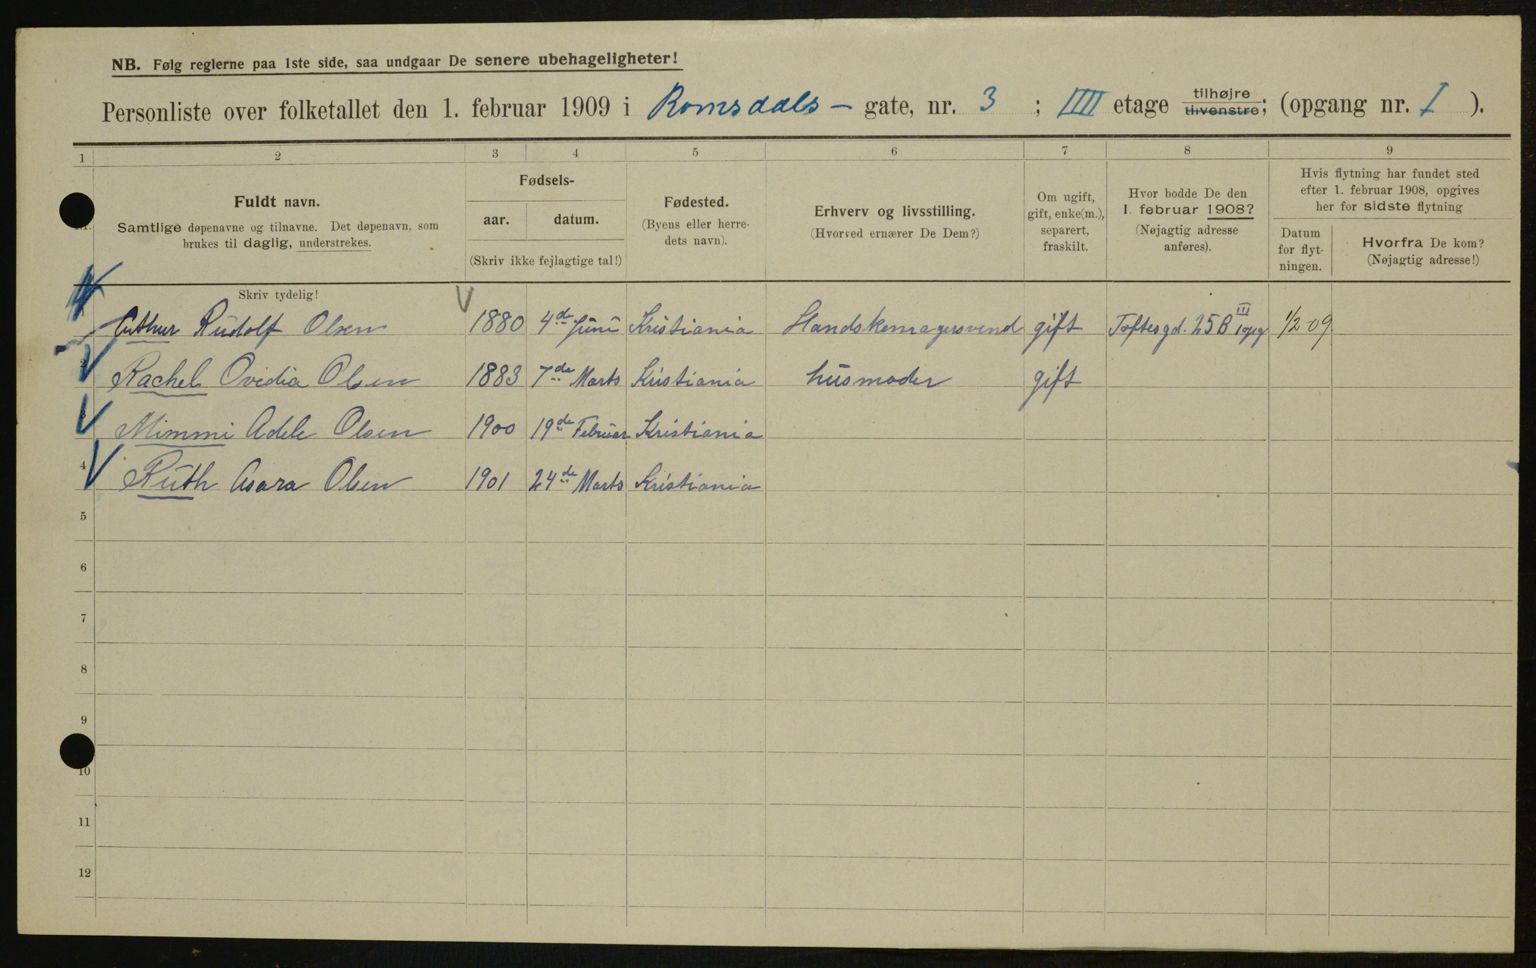 NB. Følg reglerne paa 1ste side, saa undgaar De senere ubehageligheter!
Personliste over folketallet den 1. februar 1909 i Romsdals- gate, nr. 3 ; IIII etage tilhøjre tilvenstre; (opgang nr. I ).
1 2 3 4 5 6 7 8 9
Fuldt navn.
Samtlige døpenavne og tilnavne. Det døpenavn, som
brukes til daglig, understrekes.
Skriv tydelig!
Fødsels-
aar. datum.
(Skriv ikke fejlagtige tal!)
Fødested.
(Byens eller herre-
dets navn).
Erhverv og livsstilling.
(Hvorved ernærer De Dem?)
Om ugift,
gift, enke(m.),
separert,
fraskilt.
Hvor bodde De den
1. februar 1908?
(Nøjagtig adresse
anføres).
Hvis flytning har fundet sted
efter 1. februar 1908, opgives
her for sidste flytning
Datum
for flyt-
ningen.
Hvorfra De kom?
(Nøjagtig adresse!)
Arthur Rudolf Olsen 1880 4de Juni Kristiania Handskemagersvend gift Toftesgd. 25B III 1/2 09
Rachel Ovidia Olsen 1883 7de Marts Kristiania husmoder gift
3 Mimmi Adele Olsen 1900 19de Februar Kristiania
4 Ruth Asara Olsen 1901 24de Marts Kristiania
5
6
7
8
9
10
11
12